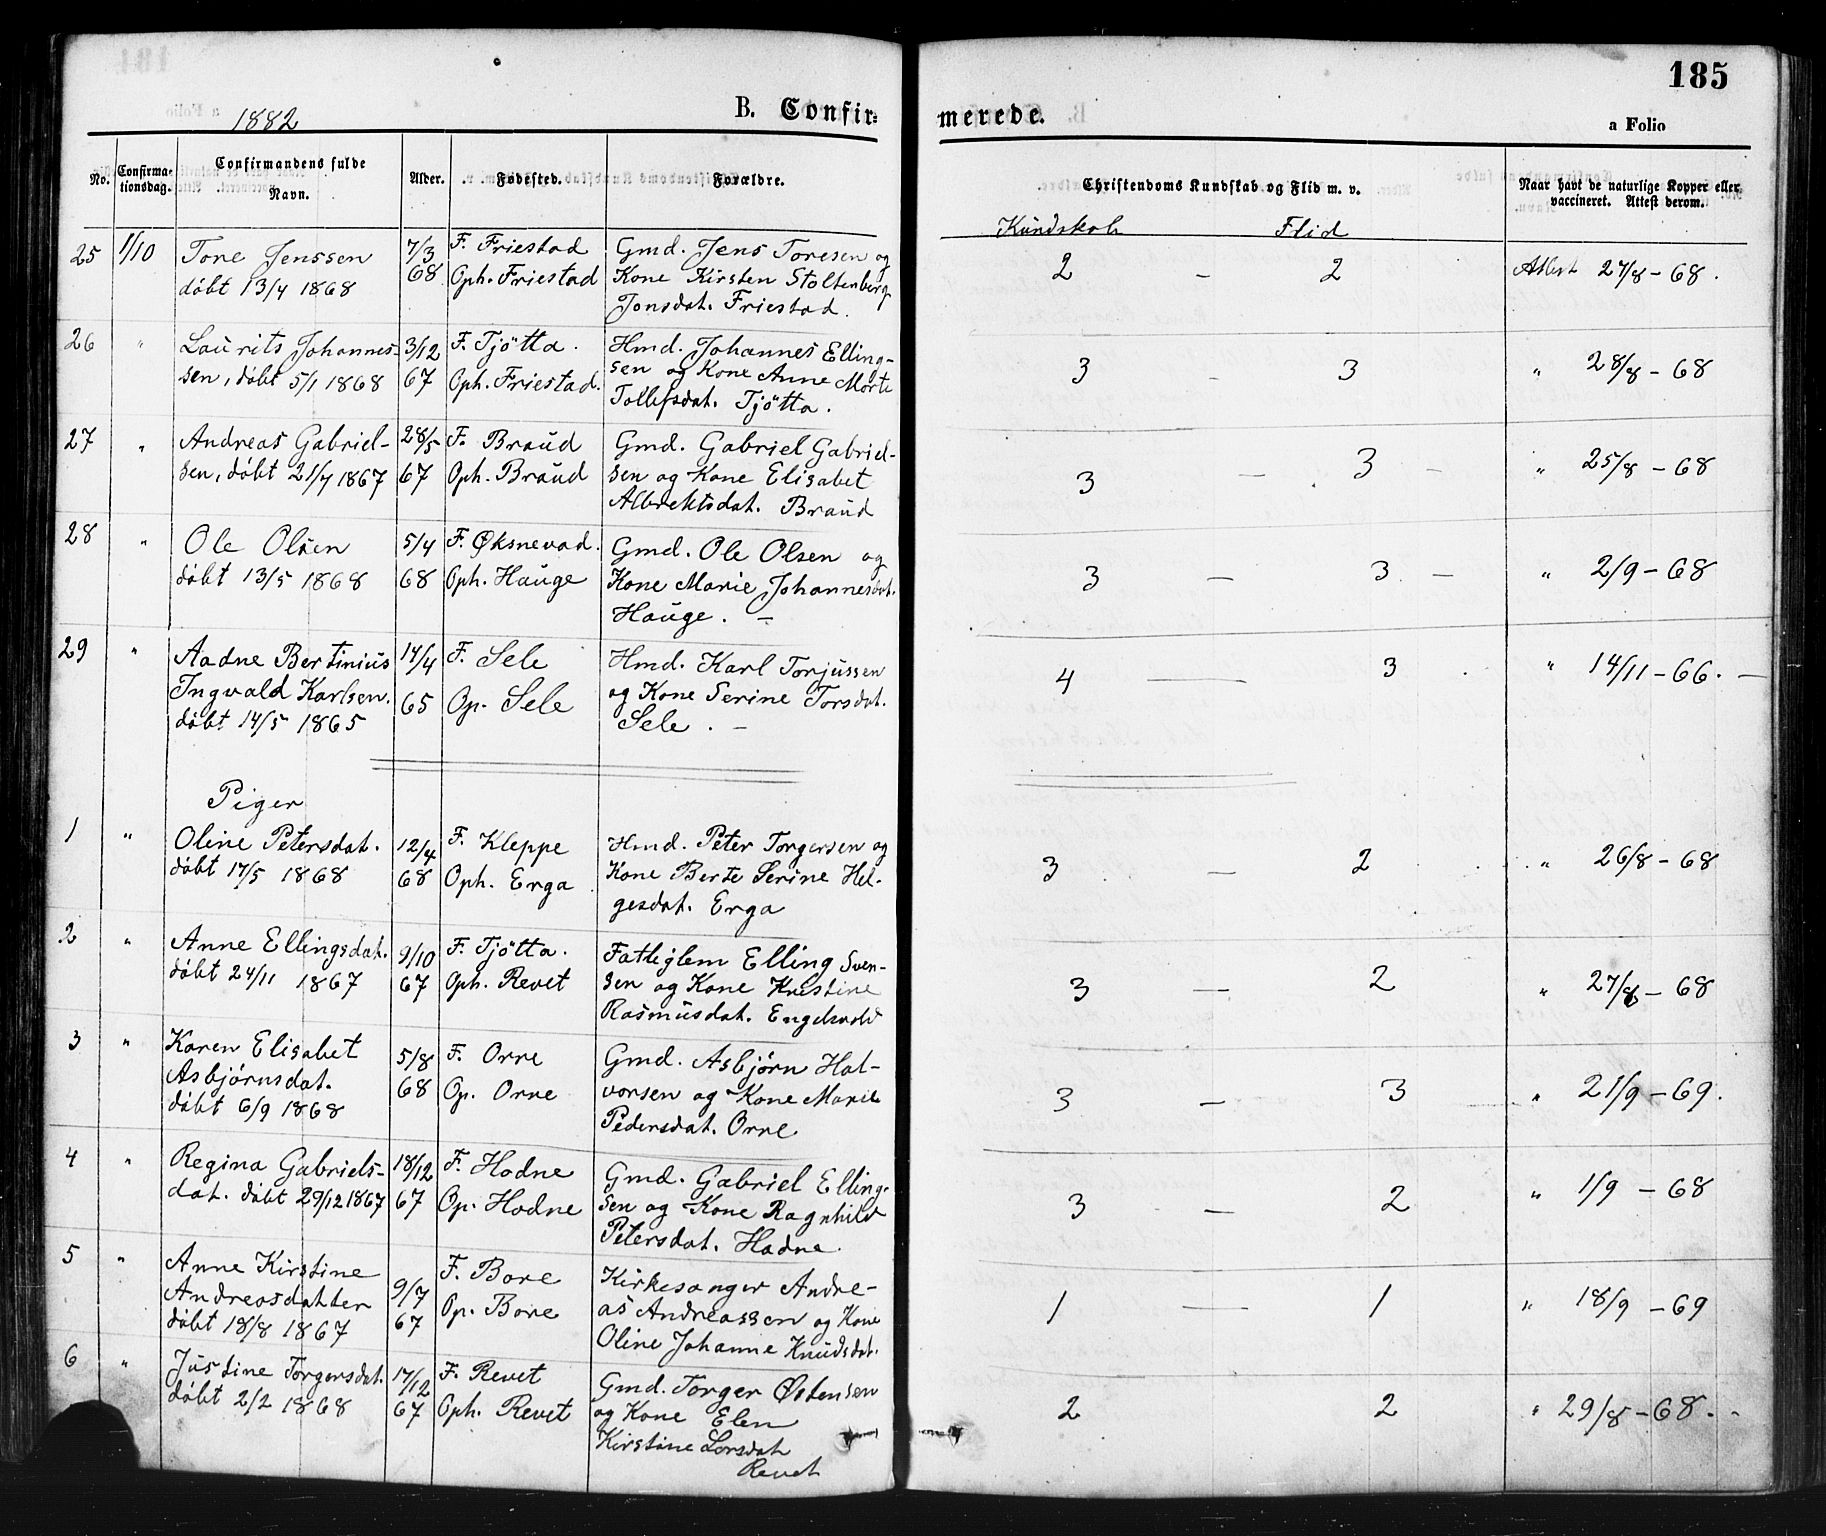 185
1882
B. Confirmerede.
a Folio
No. Confirmationsdag. Confirmandens fulde Navn. Alder. Fødested. Forældre. Christendoms Kundskab og Flid m. v. Naar havt de naturlige Kopper eller vaccineret. Attest derom.
Kundskab Flid
25 1/10 Tore Jenssen 7/3 F. Friestad Gmd. Jens Toresen og 2 - 2 Attest 27/8-68.
døbt 13/4 1868 68 Oph. Friestad Kone Kirsten Stoltenberg
Jonsdat. Friestad.
26 " Laurits Johannes- 3/12 F. Tjøtta. Hmd. Johannes Elling- 3 - 3 " 28/8-68
sen, døbt 5/1 1868 67 Oph. Friestad. sen og Kone Anne Marte
Tollefsdat. Tjøtta.
27 " Andreas Gabriel- 28/5 F. Braud Gmd. Gabriel Gabriel- 3 - 3 - " 25/8-68
sen, døbt 21/7 1867 67 Oph. Braud sen og Kone Elisabet
Albrektsdat. Braud
28 " Ole Olsen 5/4 F. Øksnevad. Gmd. Ole Olsen og 3 - 3 - " 2/9-68
døbt 13/5 1868 68 Oph. Hauge Kone Marie Johannesdat.
Hauge. -
29 " Aadne Bertinius 14/4 F. Sele Hmd. Karl Torjussen 4 - 3 " 14/11-66. -
Ingvald Karlsen. 65 Op. Sele og Kone Serine Torsdat.
døbt 14/5 1865 Sele. -
Piger
1 " Oline Petersdat. 12/4 F. Kleppe Hmd. Peter Torgersen og 3 - 2 " 26/8-68
døbt 17/5 1868 68 Oph. Erga Kone Berte Serine Hel-
gesdat. Erga
2 " Anne Ellingsdat. 9/10 F. Tjøtta. Fattiglem Elling Sven- 3 - 2 " 27/8-68
døbt 24/11 1867 67 Oph. Revet sen og Kone Kristine
Rasmusdat. Engelsvold
3 " Karen Elisabet 5/8 F. Orre Gmd. Asbjørn Hal- 3 - 3 " 21/9-69.
Asbjørnsdat. 68 Op. Orre vorsen og Kone Marie
døbt 6/9 1868 Pedersdat. Orre
4 " Regina Gabriels- 18/12 F. Hodne Gmd. Gabriel Elling- 3 - 2 " 1/9-68
dat. døbt 29/12 1867 67 Op. Hodne sen og Kone Ragnhild
Petersdat. Hodne.
5 " Anne Kirstine 9/7 F. Bore Kirkesanger Andre- 1 - 1 " 18/9-69
Andreasdatter 67 Op. Bore as Andreassen og Kone
døbt 18/8 1867 Oline Johanne Knudsdat.
6 " Justine Torgersdat. 17/12 F. Revet Gmd. Torger Østensen 2 2 " 29/8-68.-
døbt 2/2 1868 67 Oph. Revet og Kone Elen
Kirstine Larsdat
Revet